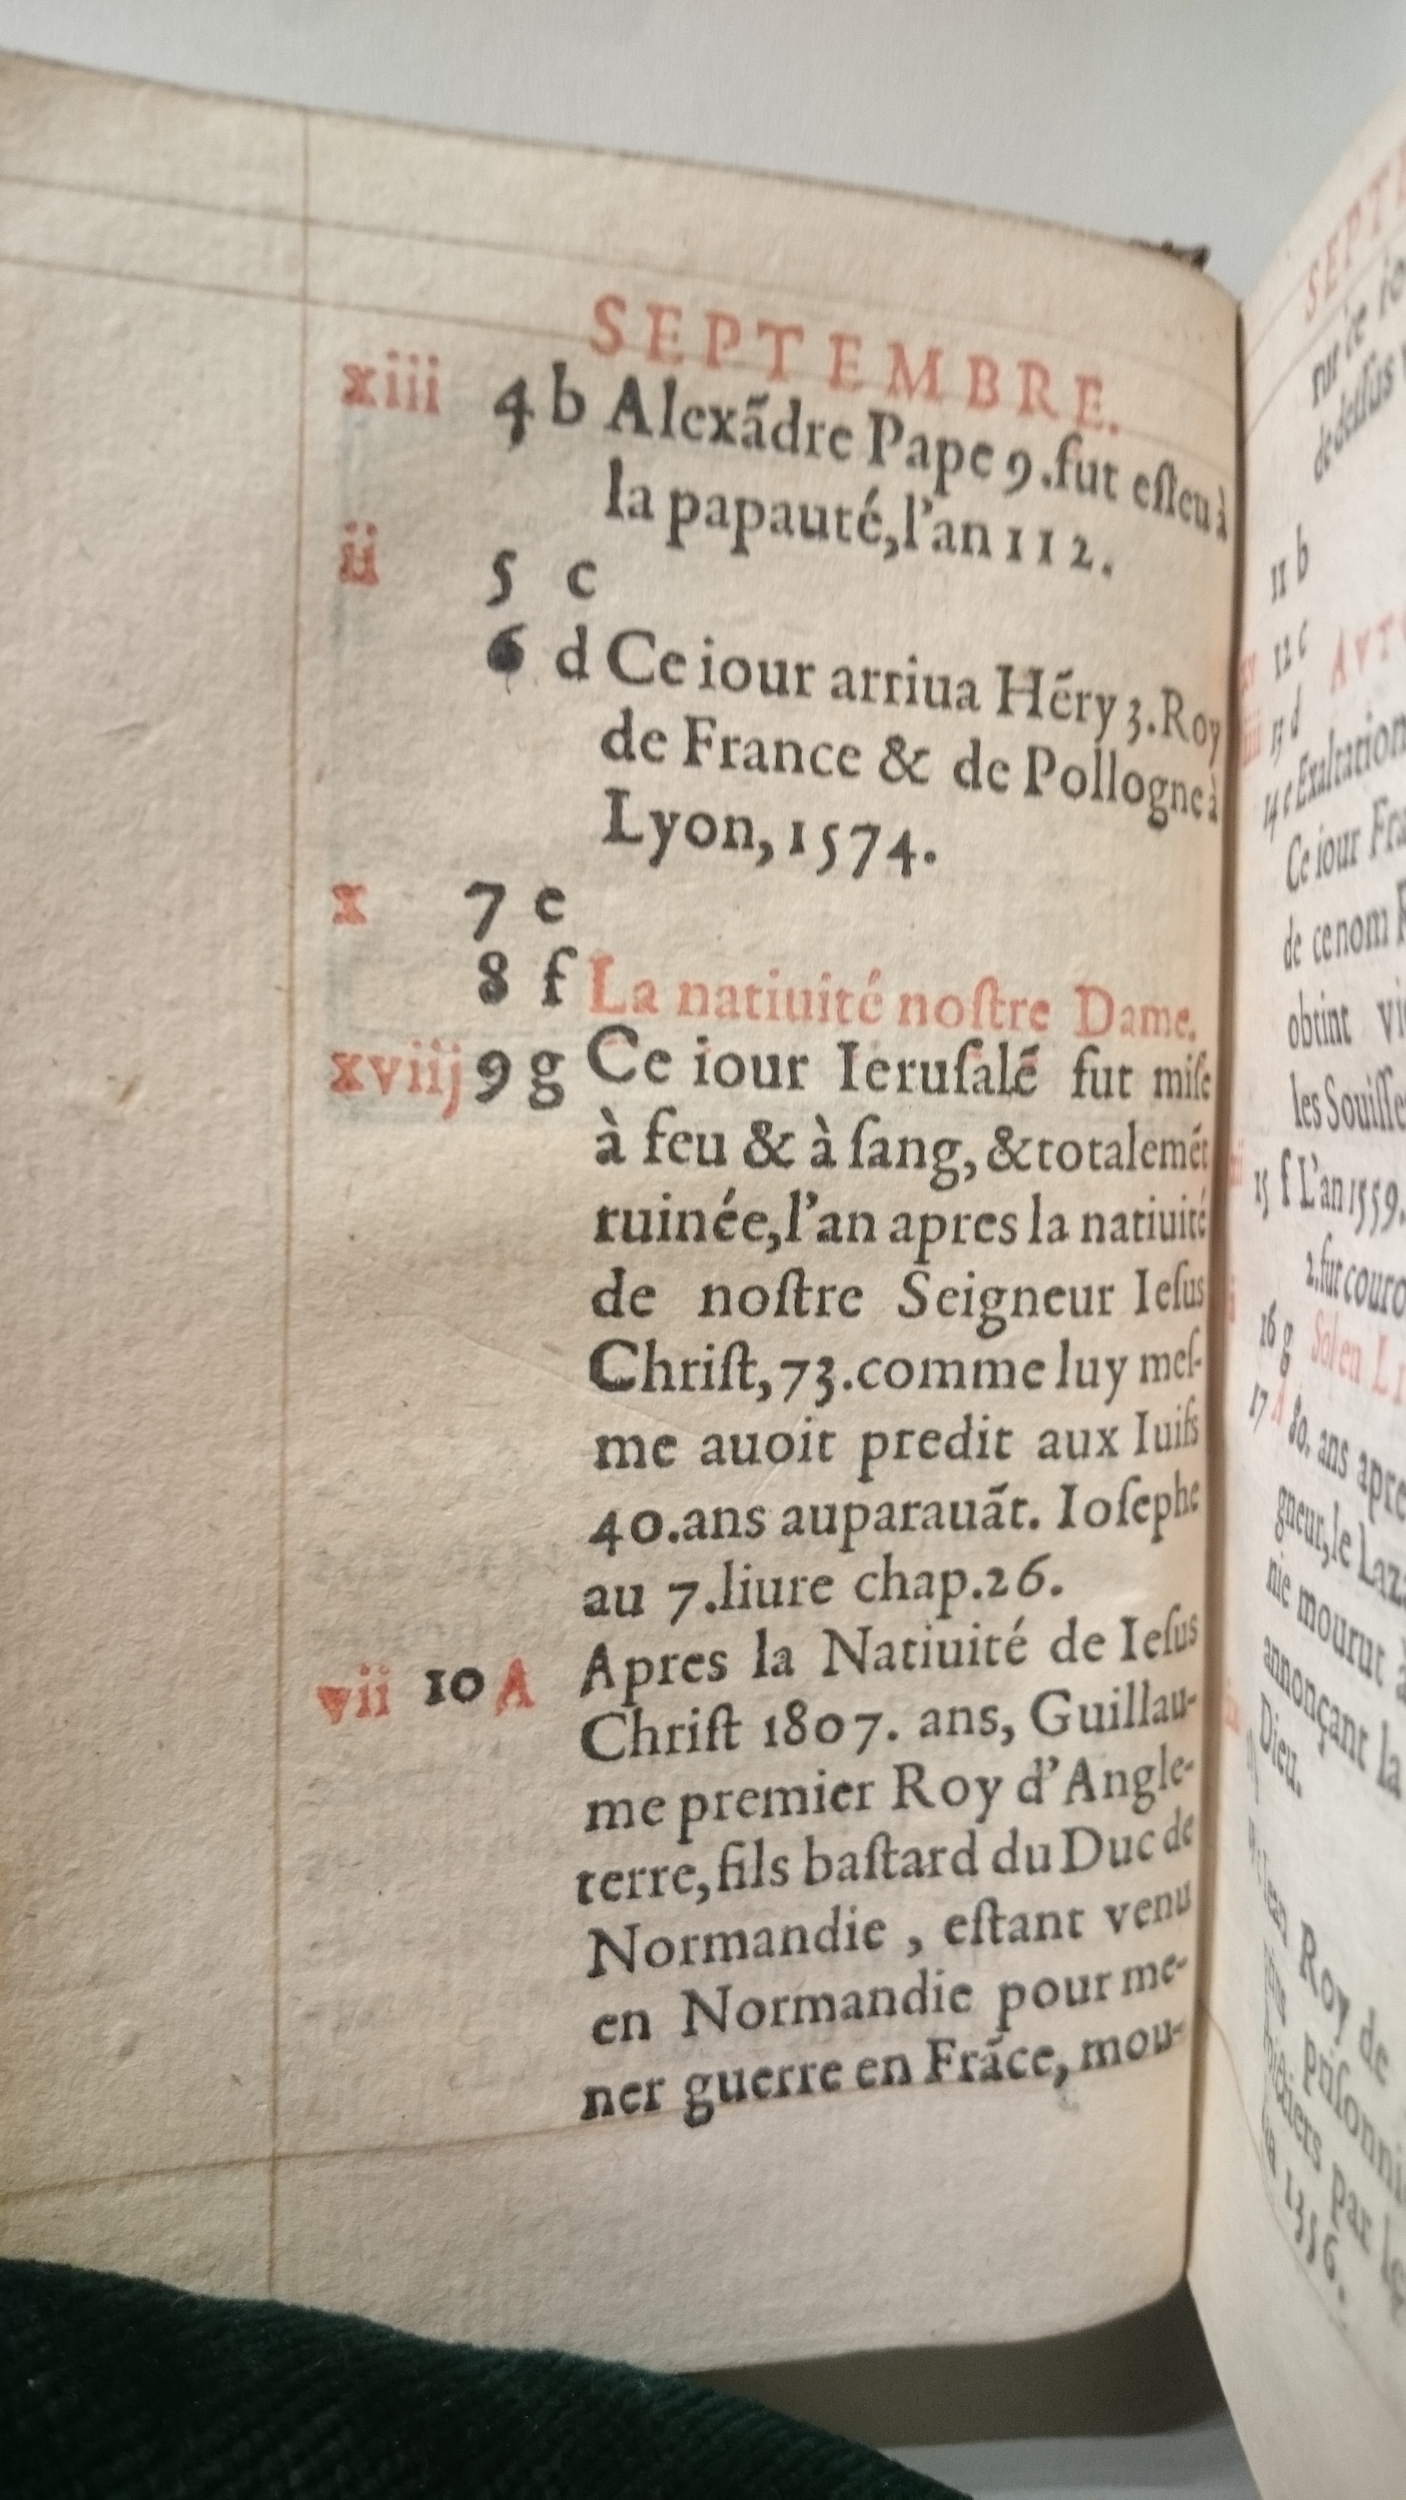 SEPTEMBRE.
xiii 4 b Alexãdre Pape 9.fut eſleu à
la papauté,l'an 112.
ii 5 c
6 d Ce iour arriua Hẽry 3.Roy
de France & de Pollogne à
Lyon, 1574.
x 7 e
8 f La natiuité noſtre Dame.
xviij 9 g Ce iour Ieruſalẽ fut miſe
à feu & à ſang, & totalemẽt
ruinée,l'an apres la natiuité
de noſtre Seigneur Ieſus
Chriſt,73.comme luy meſ-
me auoit predit aux Iuifs
40.ans auparauãt. Ioſephe
au 7.liure chap.26.
vii 10 A Apres la Natiuité de Ieſus
Chriſt 1807. ans, Guillau-
me premier Roy d'Angle-
terre,fils baſtard du Duc de
Normandie , eſtant venu
en Normandie pour me-
ner guerre en Frãce, mou-
11 b
12 c
13 d
14 e Exaltation
Ce iour
de ce nom
obtint
les Souiſſe
15 f L'an 1559.
2.fut couro
16 g Sol en
17 A 80. ans apre
gneur,le
nie mourut à
annonçant la
Dieu.
Roy de
priſonni
par le
1356.